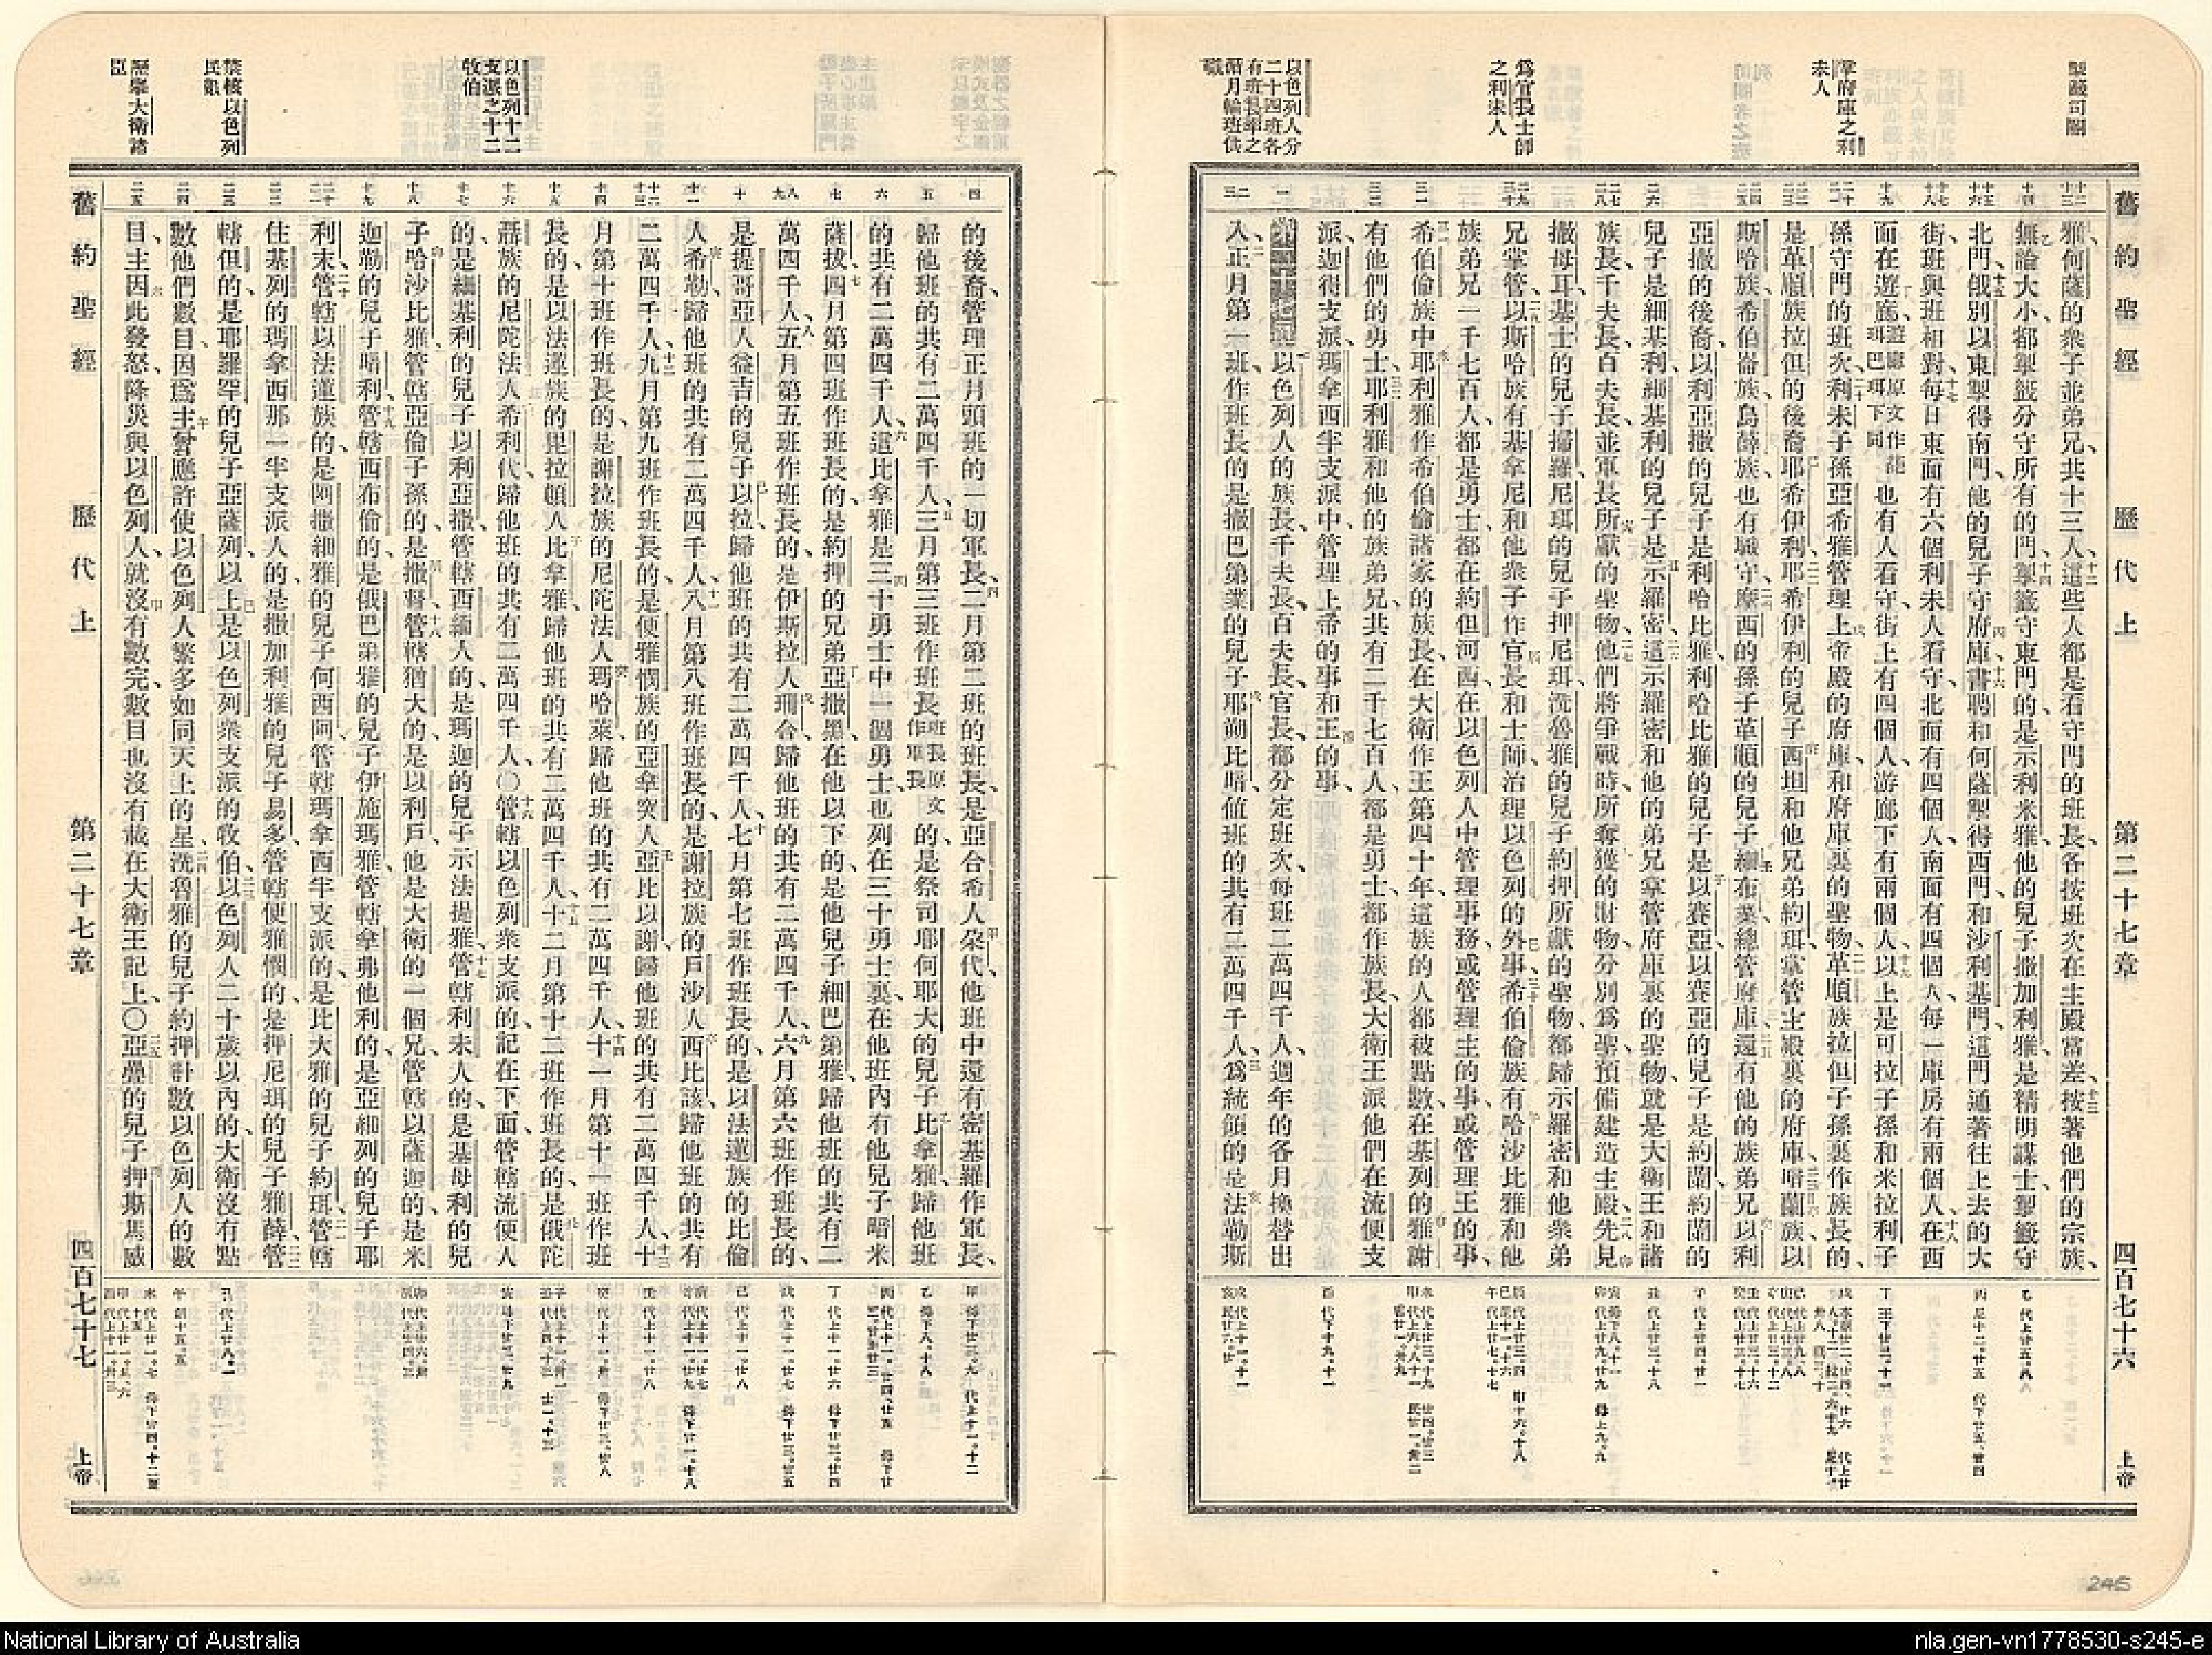 掣籤司閽
掌府庫之利
未人
爲官長士師
之利未人
以色列人分
二十四班各
有班長率之
循月輪班供
職
舊約聖經 歷代上 第二十七章 四百七十六 上帝
雅何薩的衆子並弟兄、共十三人、這些人都是看守門的班長、各按班次在主殿當差、按著他們的宗族、
無論大小、都掣籤分守所有的門、掣籤守東門的是示利米雅、他的兒子撒加利雅、是精明謀士、掣籤守
北門、俄別以東掣得南門、他的兒子守府庫、書聘和何薩掣得西門、和沙利基門、這門通著往上去的大
街、班與班相對、每日東面有六個利未人看守、北面有四個人、南面有四個人、每一庫房有兩個人、在西
面在遊廊、遊廊原文作巴珥下同也有人看守、街上有四個人、游廊下有兩個人、以上是可拉子孫和米拉利子
孫守門的班次、利未子孫亞希雅管理上帝殿的府庫、和府庫裏的聖物、革順族拉但子孫裏作族長的、
是革順族拉但的後裔耶希伊利、耶希伊利的兒子西坦和他兄弟約珥、掌管主殿裏的府庫、暗蘭族、以
斯哈族、希伯崙族、烏薛族、也有職守、摩西的孫子革順的兒子細布業總管府庫、還有他的族弟兄以利
亞撒的後裔、以利亞撒的兒子是利哈比雅、利哈比雅的兒子是以賽亞、以賽亞的兒子是約蘭、約蘭的
兒子是細基利、細基利的兒子是示羅密、這示羅密和他的弟兄掌管府庫裏的聖物、就是大衛王和諸
族長、千夫長、百夫長、並軍長所獻的聖物、他們將爭戰時所奪獲的財物、分別爲聖、預備建造主殿、先見
撒母耳、基士的兒子掃羅、尼珥的兒子押尼珥、洗魯雅的兒子約押所獻的聖物、都歸示羅密和他衆弟
兄掌管、以斯哈族有基拿尼和他衆子作官長和士師、治理以色列的外事、希伯倫族有哈沙比雅和他
族弟兄一千七百人、都是勇士、都在約但河西、在以色列人中管理事務、或管理主的事、或管理王的事、
希伯倫族中耶利雅作希伯倫諸家的族長、在大衛作王第四十年、這族的人都被點數、在基列的雅謝
有他們的勇士、耶利雅和他的族弟兄、共有二千七百人、都是勇士、都作族長、大衛王派他們在流便支
派、迦得支派、瑪拿西半支派中、管理上帝的事和王的事、
以色列人的族長、千夫長、百夫長、官長、都分定班次、每班二萬四千人、週年的各月換替出
入、正月第一班、作班長的是撒巴第業的兒子耶朔比暗、值班的共有二萬四千人、爲統領的是法勒斯
以色列十二
支派之十二
牧伯
禁核以色列
民數
歷舉大衛諸
臣
的後裔、管理正月頭班的一切軍長、二月第二班的班長、是亞合希人朶代、他班中還有密基羅作軍長、
歸他班的共有二萬四千人、三月第三班作班長班長原文作軍長的、是祭司耶何耶大的兒子比拿雅、歸他班
的共有二萬四千人、這比拿雅是三十勇士中一個勇士、也列在三十勇士裏、在他班內有他兒子暗米
薩拔、四月第四班作班長的、是約押的兄弟亞撒黑、在他以下的、是他兒子細巴第雅、歸他班的共有二
萬四千人、五月第五班作班長的、是伊斯拉人珊合、歸他班的共有二萬四千人、六月第六班作班長的、
是提哥亞人益吉的兒子以拉、歸他班的共有二萬四千人、七月第七班作班長的、是以法蓮族的比倫
人希勒、歸他班的共有二萬四千人、八月第八班作班長的、是謝拉族的戶沙人西比該、歸他班的共有
二萬四千人、九月第九班作班長的、是便雅憫族的亞拿突人亞比以謝、歸他班的共有二萬四千人、十
月第十班作班長的、是謝拉族的尼陀法人瑪哈萊、歸他班的共有二萬四千人、十一月第十一班作班
長的、是以法蓮族的毘拉頓人比拿雅、歸他班的共有二萬四千人、十二月第十二班作班長的、是俄陀
聶族的尼陀法人希利代、歸他班的共有二萬四千人、○管轄以色列衆支派的、記在下面、管轄流便人
的、是細基利的兒子以利亞撒、管轄西緬人的、是瑪迦的兒子示法提雅、管轄利未人的、是基母利的兒
子哈沙比雅、管轄亞倫子孫的、是撒督、管轄猶大的、是以利戶、他是大衛的一個兄、管轄以薩迦的、是米
迦勒的兒子暗利、管轄西布倫的、是俄巴第雅的兒子伊施瑪雅、管轄拿弗他利的、是亞細列的兒子耶
利末、管轄以法蓮族的、是阿撒細雅的兒子何西阿、管轄瑪拿西半支派的、是比大雅的兒子約珥、管轄
住基列的瑪拿西那一半支派人的、是撒加利雅的兒子易多、管轄便雅憫的、是押尼珥的兒子雅薛、管
轄但的、是耶羅罕的兒子亞薩列、以上是以色列衆支派的牧伯、以色列人二十歲以內的、大衛沒有點
數他們數目、因爲主曾應許使以色列人繁多如同天上的星、洗魯雅的兒子約押計數以色列人的數
目、主因此發怒、降災與以色列人、就沒有數完、數目也沒有載在大衛王記上、○亞疊的兒子押斯馬威
舊約聖經 歷代上 第二十七章 四百七十七 上帝
245
National Library of Australia
nla.gen-vn1778530-s245-e